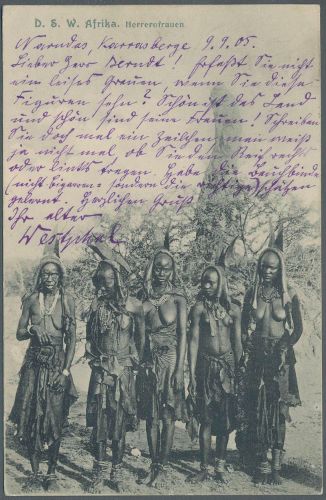 D. S. W. Afrika. Herrerofrauen
Narudas, Karrasberge 9.9.05.
Lieber Herr Berndt! Erfaßt Sie nicht
ein leises Grauen, wenn Sie diese
Figuren sehn? Schön ist das Land
und schön sind seine Frauen! Schreiben
Sie doch mal ein Zeilchen, man weiß
ja nicht mal ob Sie den Sieg rechts
oder links tragen. Habe die Bauchbinde
(nicht Cigarren) sondern die richtige schätzen
gelernt. Herzlichen Gruß
Ihr alter
Westphal